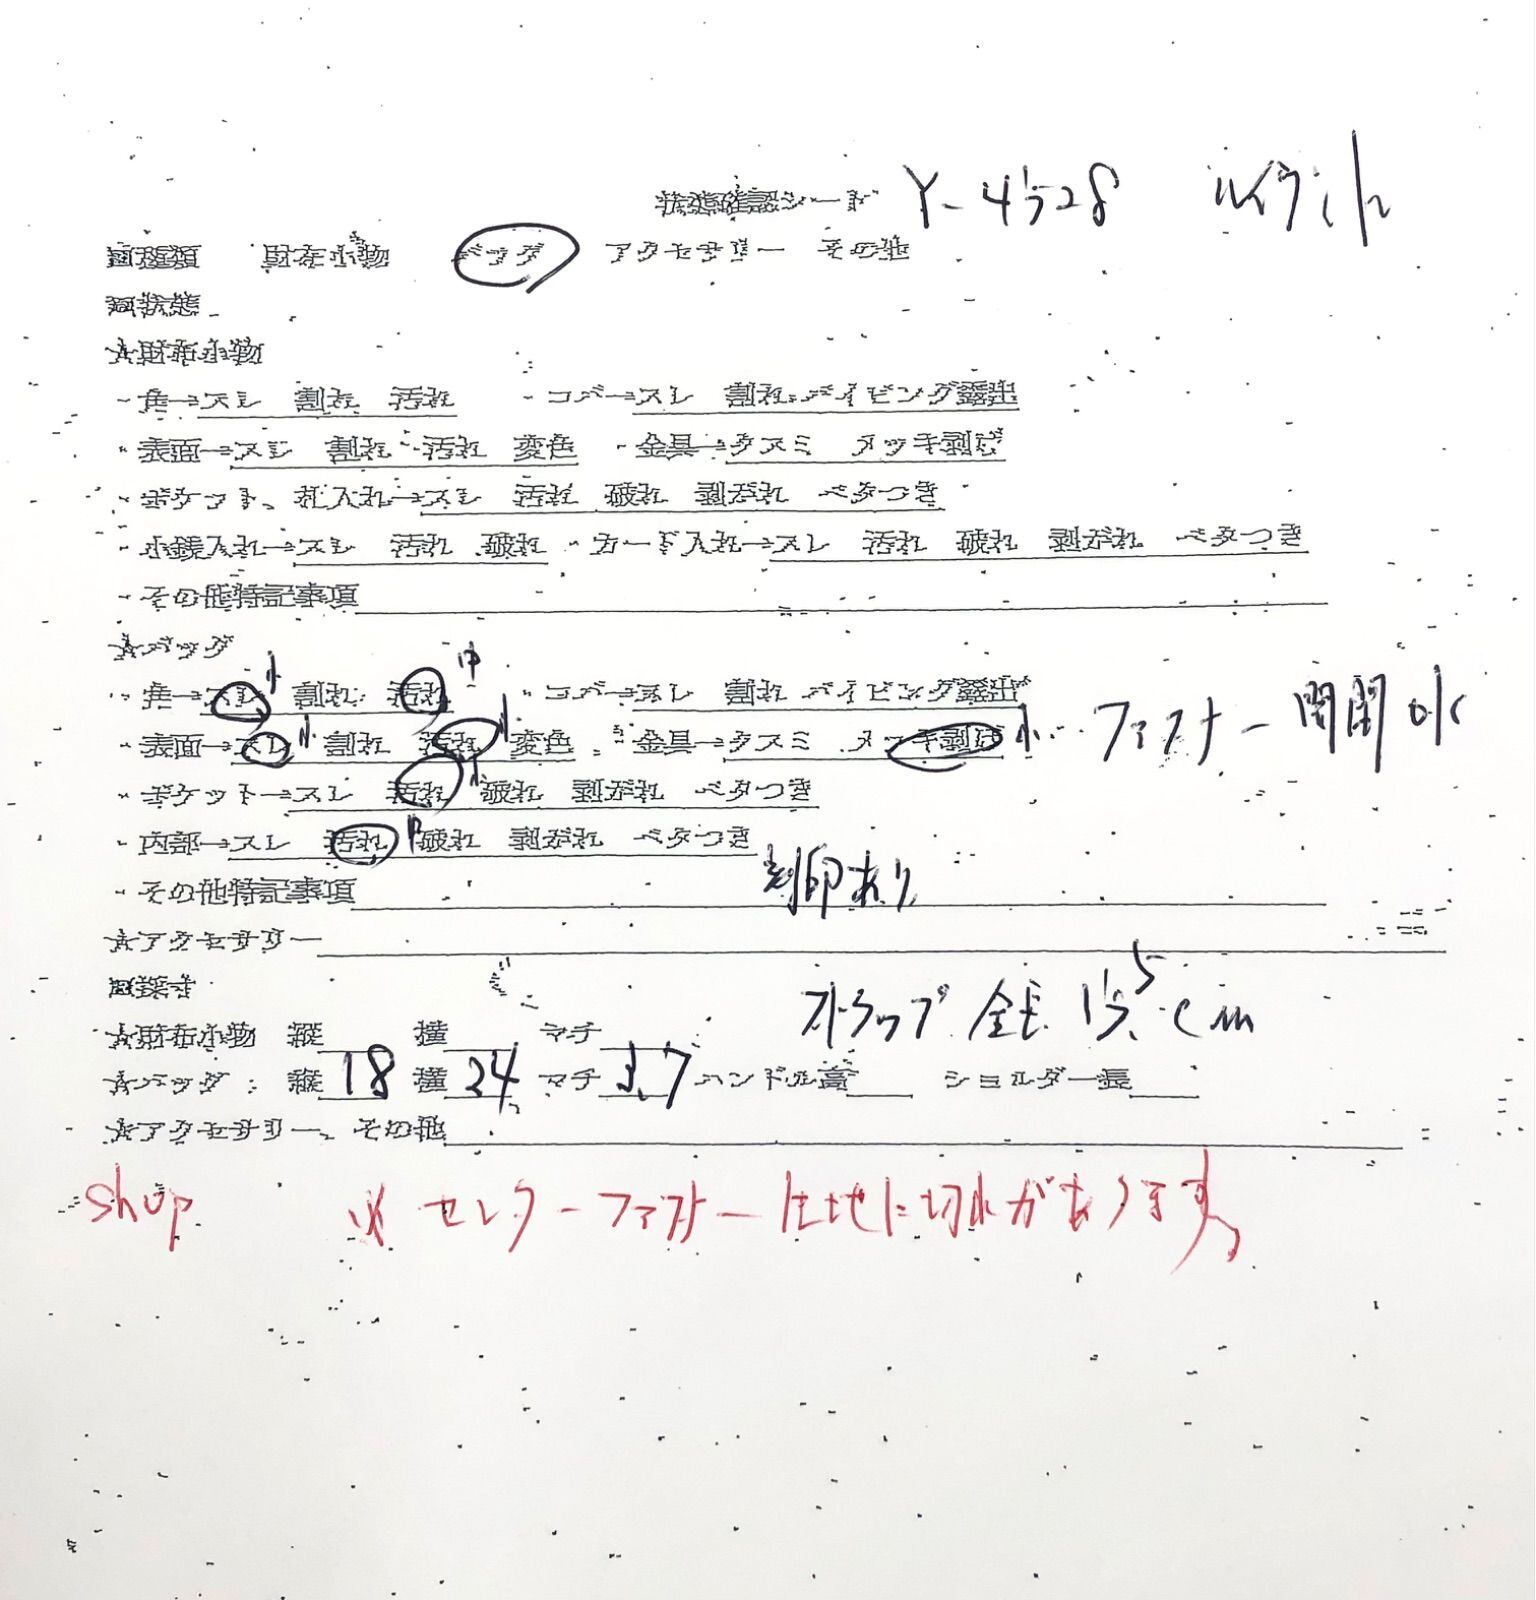 状態確認シート Y-4528 ルイヴィトン
■種類 財布小物 バッグ アクセサリー その他
■状態
★財布小物
・角→スレ 割れ 汚れ ・コバ→スレ 割れ パイピング露出
・表面→スレ 割れ 汚れ 変色 ・金具→クスミ メッキ剥げ
・ポケット、札入れ→スレ 汚れ 破れ 剥がれ ベタつき
・小銭入れ→スレ 汚れ 破れ ・カード入れ→スレ 汚れ 破れ 剥がれ ベタつき
・その他特記事項
★バッグ
・角→スレ 小 割れ 汚れ 中 ・コバ→スレ 割れ パイピング露出
・表面→スレ 小 割れ 汚れ 小 変色 ・金具→クスミ メッキ剥げ 小 ファスナー開閉OK
・ポケット→スレ 汚れ 小 破れ 剥がれ ベタつき
・内部→スレ 汚れ 中 破れ 剥がれ ベタつき
・その他特記事項 刻印あり
★アクセサリー
■採寸 ストラップ 全長 cm
★財布小物 縦 横 マチ
★バッグ : 縦 18 横 24 マチ 3.7 ハンドル高 ショルダー長
★アクセサリー、その他
shop ※ センターファスナー生地に切れがあります。